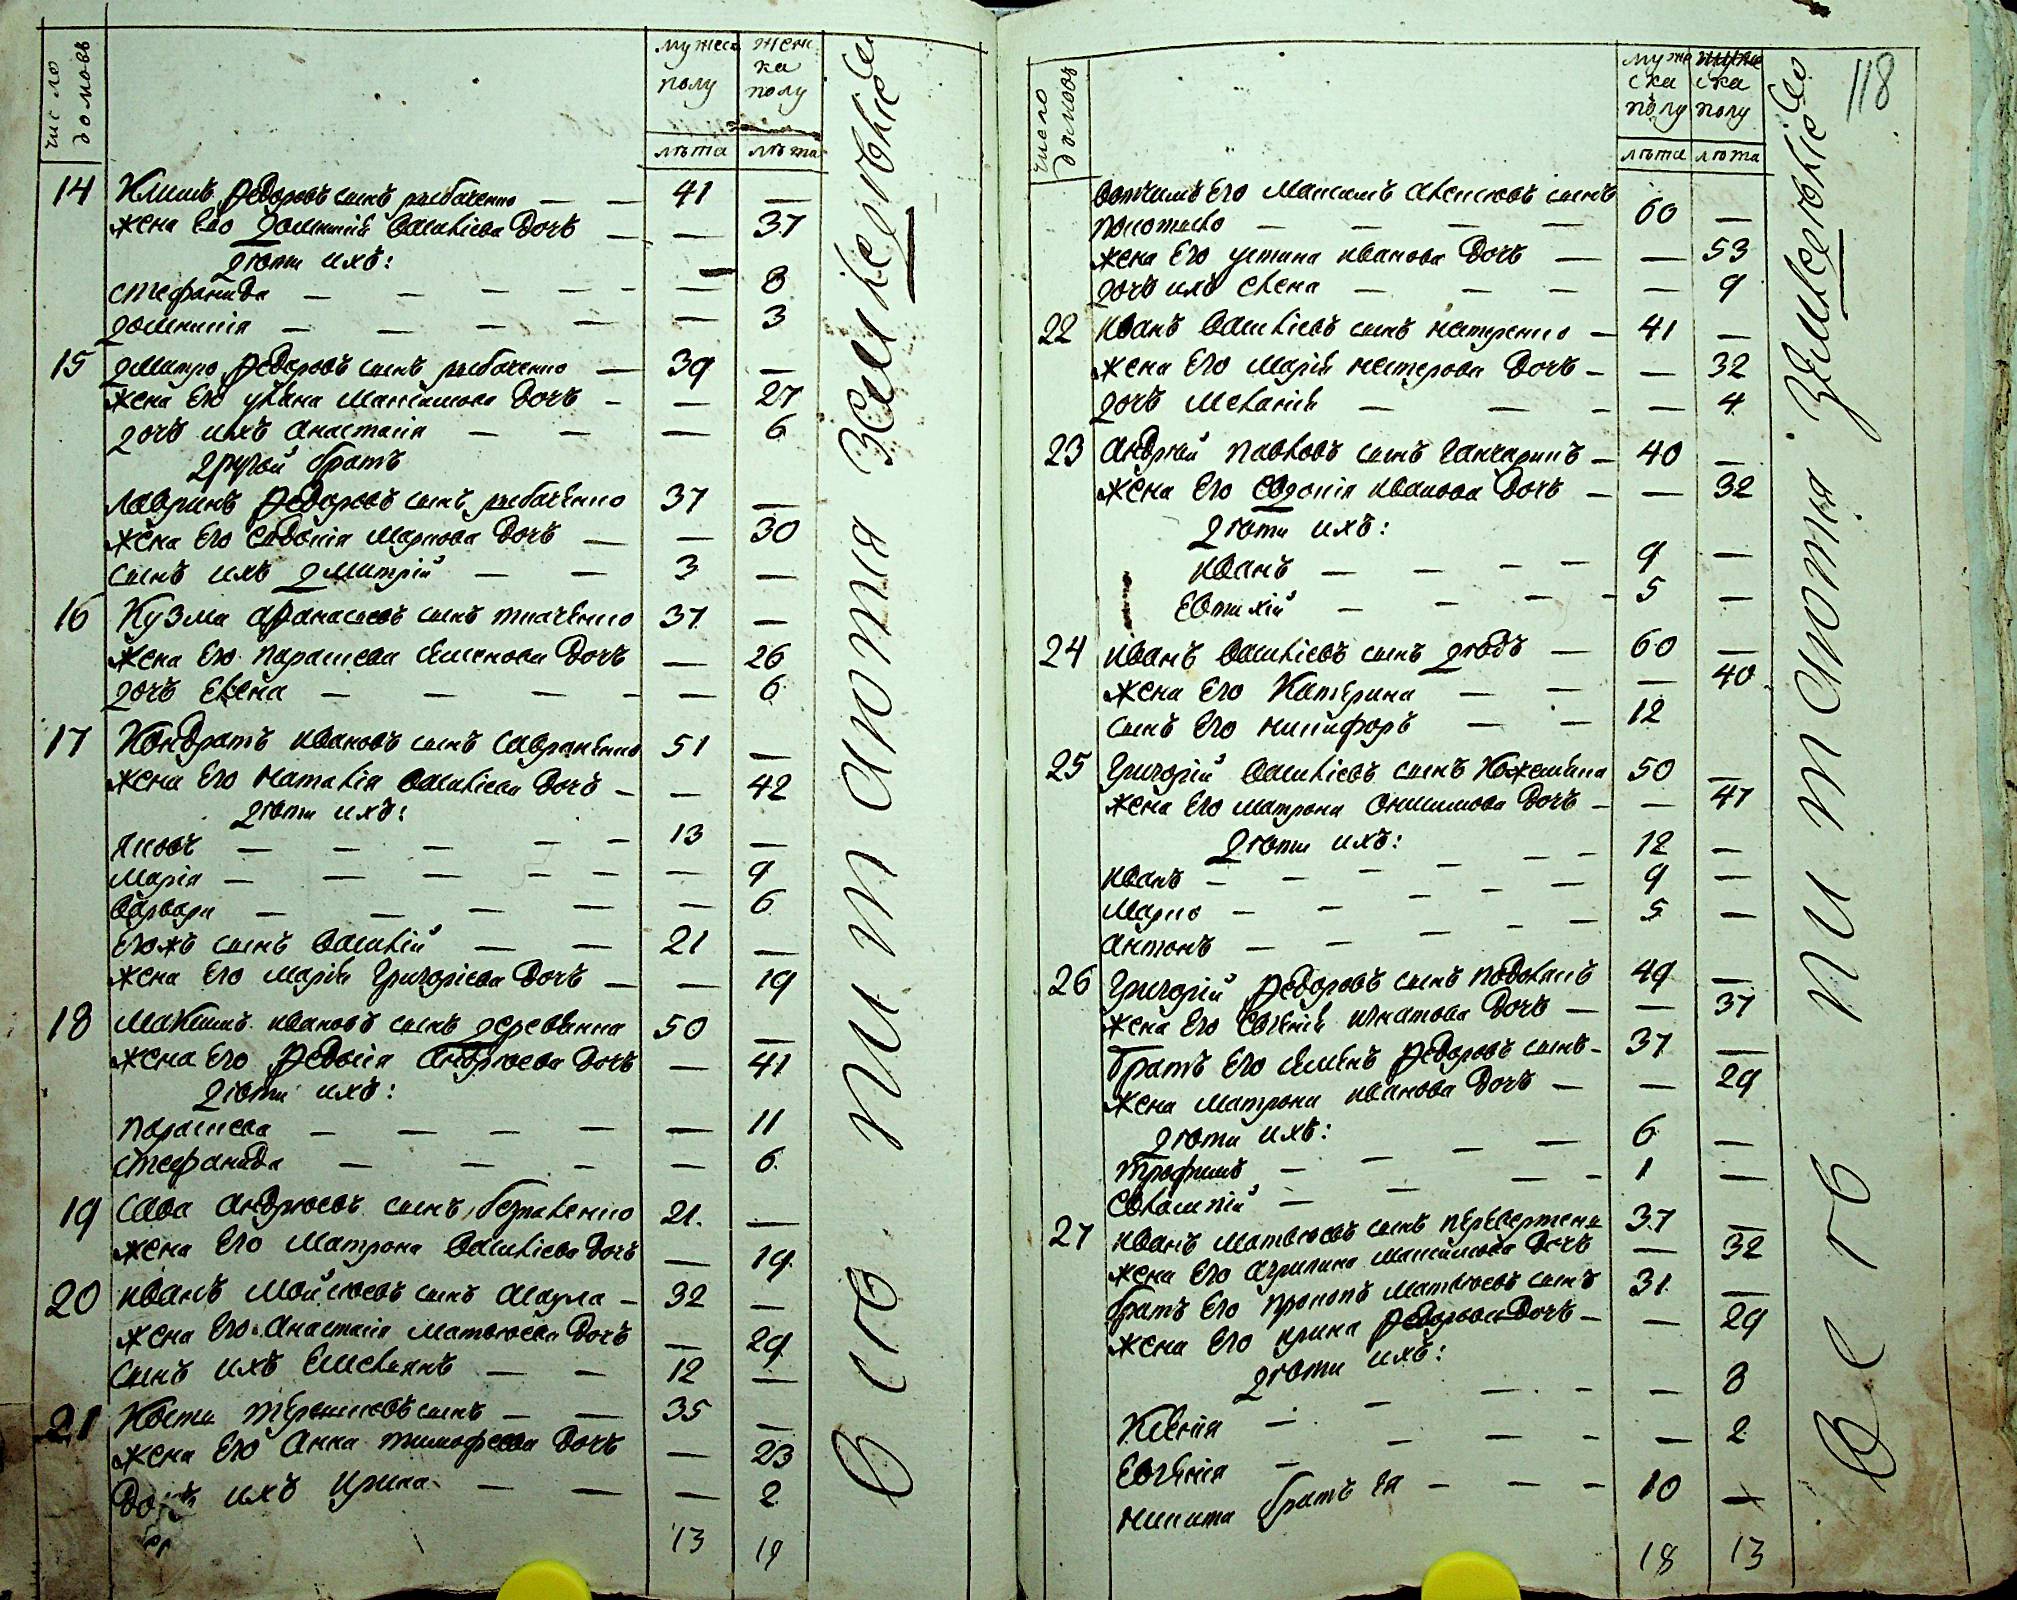 число домовъ
мужеска полу
женска полу
лѣта лѣта
14 Климъ Федоровъ сынъ рыбаченко — — 41 —
жена Его Домникія Василіева Дочь — — 37
Дѣти ихъ:
стефанида — — — — — — 8
домникія — — — — — 3
15 Дмитро Федоровъ сынъ рыбаченко — 39 —
жена Его уляна Максимова Дочь — — 27
дочь ихъ Анастасія — — — 6
другой братъ
лавринъ Федоровъ сынъ рыбаченко 37 —
жена Его Евдокія Маркова Дочь — — 30
сынъ ихъ Дмитрій — — 3 —
16 Кузма Афанасіевъ сынъ ткаченко 37 —
жена Его Параскева Семенова Дочь — 26
дочь Елена — — — — — 6
17 Кондратъ ивановъ сынъ Савраненко 51 —
жена Его наталія Василіева Дочь — — 42
дѣти ихъ:
яковъ — — — — — 13 —
марія — — — — — — 9
варвара — — — — — 6
Егожъ сынъ Василій — — 21 —
жена Его марія Григоріева Дочь — — 19
18 Максимъ ивановъ сынъ деревянка 50 —
жена Его Федосія Андрѣева Дочь — 41
дѣти ихъ:
параскева — — — — — 11
стефанида — — — — 6
19 Сава Андрѣевъ сынъ 21 —
жена Его Матрона Василіева Дочь — 19
20 иванъ Мойсѣевъ сынъ — 32 —
жена Его Анастасія Матвѣева Дочь — 29
сынъ ихъ Емеліянъ — — 12 —
21 Коста Терентіевъ сынъ — — 35 —
жена Его Анна тимофеева Дочь — 23
Дочь ихъ Ирина — — — 2
13 19
Всѣ питаются землепашествомъ
118
число домовъ
мужеска полу
ска полу
лѣта лѣта
вотчимъ Его Максимъ Алексѣевъ сынъ
— — — — 60 —
жена Его устина иванова Дочь — — 53
дочь ихъ Елена — — — — 9
22 иванъ Василіевъ сынъ нестренко — 41 —
жена Его Марія нестерова Дочь — — 32
дочь Меланія — — — — 4
23 Андрѣй павловъ сынъ Ганчаринъ — 40 —
жена Его Евдокія иванова Дочь — — 32
дѣти ихъ:
иванъ — — — — 9 —
Евтихій — — — — 5 —
24 иванъ Василіевъ сынъ дѣдъ — 60 —
жена Его Катерина — — — 40
сынъ Его никифоръ — — 12
25 Григорій Василіевъ сынъ Кожемяка 50 —
жена Его матрона Онисимова Дочь — — 47
дѣти ихъ:
иванъ — — — — — — 12 —
Марко — — — — — 9 —
антонъ — — — — — 5 —
26 Григорій Федоровъ сынъ подолянъ 49 —
жена Его Евгенія игнатова Дочь — — 37
братъ Его Семенъ Федоровъ сынъ — 37 —
жена матрона иванова Дочь — — 29
дѣти ихъ:
трофимъ — — — — 6 —
Евлампій — — — — 1 —
27 иванъ матвѣевъ сынъ перевертень 37 —
жена Его агрипина максимова Дочь — 32
братъ Его прокопъ матвѣевъ сынъ 31 —
жена Его ирина Федорова Дочь — — 29
дѣти ихъ:
Ксенія — — — — — 8
Евгенія — — — — 2
никита братъ Ея — — — 10 —
18 13
Всѣ питаются